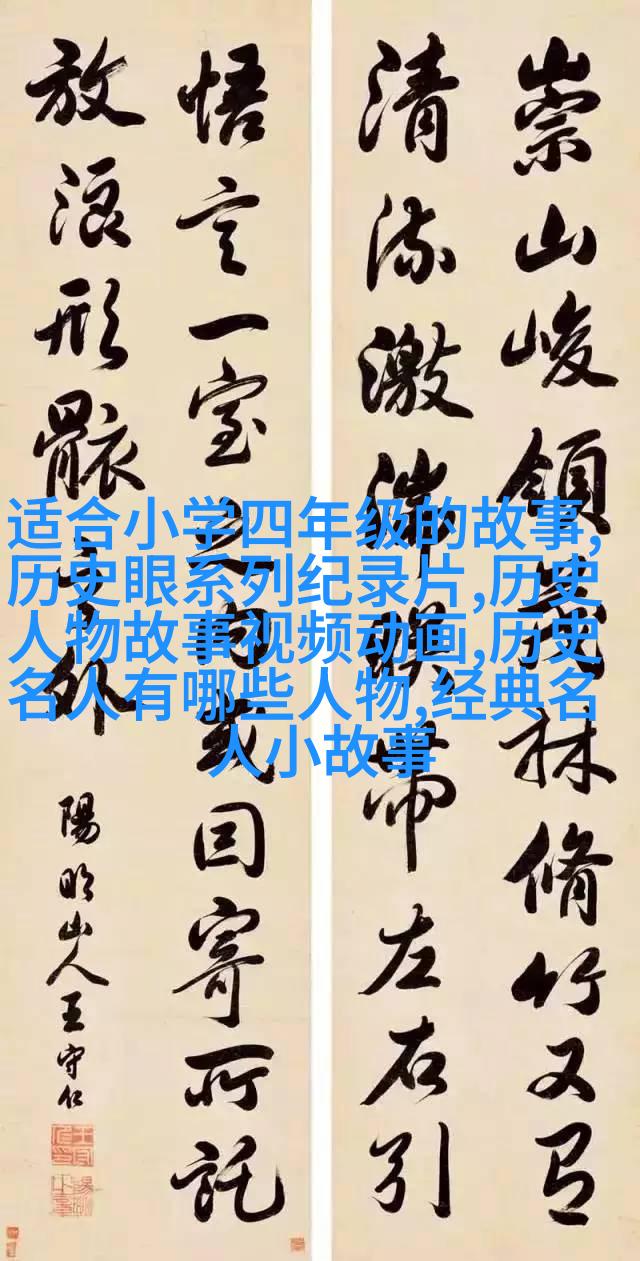 崇山峻領茂林脩竹又有
清流激湍暎帶左右引
悟言一室之內或因寄所託
放浪形骸之外
陽明山人王守仁
适合小学四年级的故事,
历史眼系列纪录片,历史
人物故事视频动画,历史
名人有哪些人物,经典名
人小故事